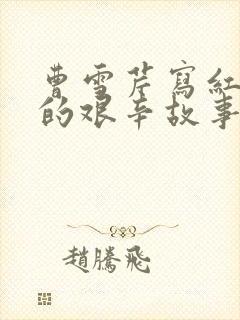 曹雪芹寫紅
的艰辛故事
趙騰飛